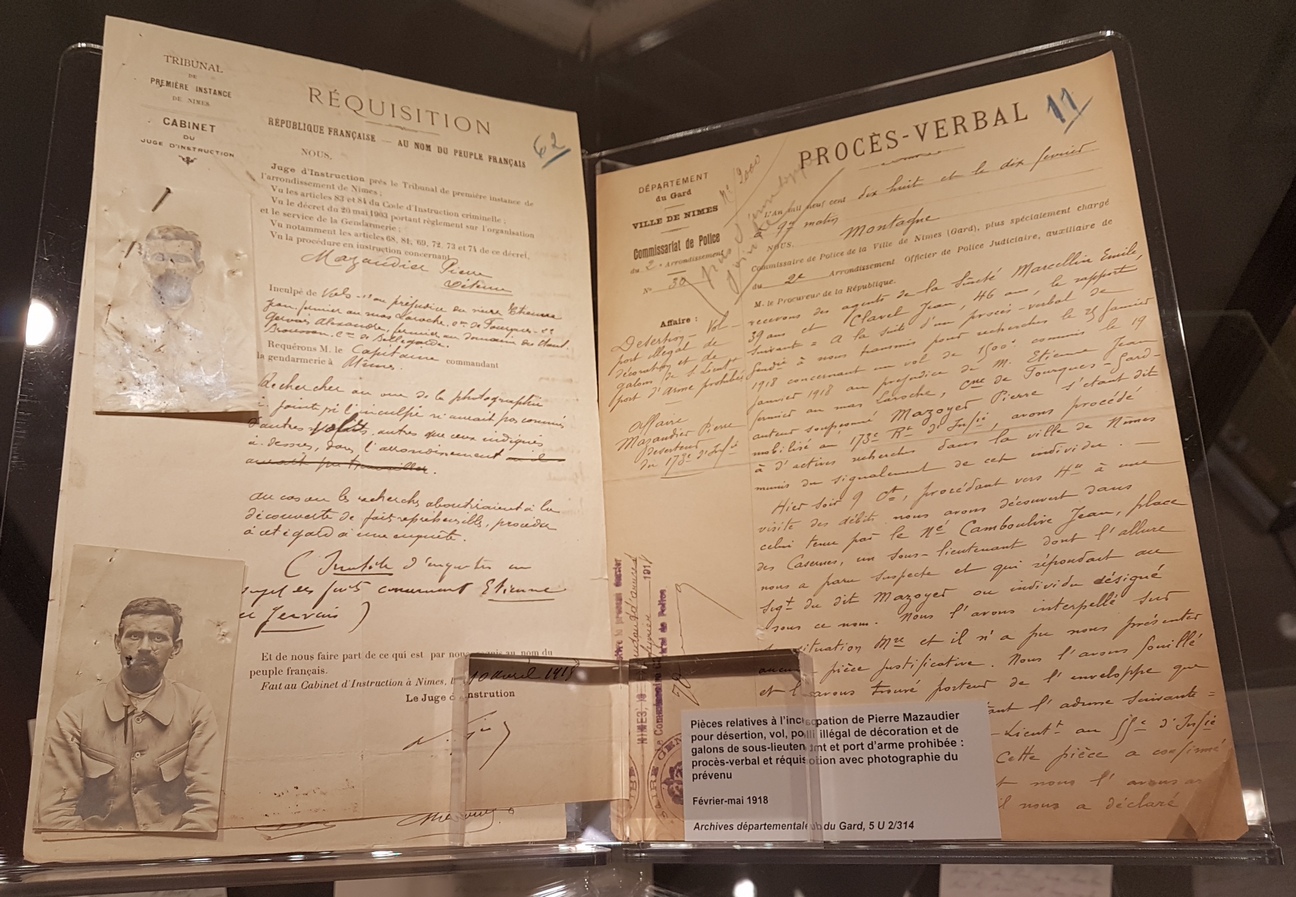 TRIBUNAL
DE
PREMIÈRE INSTANCE
DE NIMES
CABINET
DU
JUGE D'INSTRUCTION
RÉQUISITION
62
RÉPUBLIQUE FRANÇAISE — AU NOM DU PEUPLE FRANÇAIS
NOUS,
Juge d'Instruction près le Tribunal de première instance de
l'arrondissement de Nimes ;
Vu les articles 83 et 84 du Code d'Instruction criminelle ;
Vu le décret du 20 mai 1903 portant règlement sur l'organisation
et le service de la Gendarmerie ;
Vu notamment les articles 68, 81, 69, 72, 73 et 74 de ce décret,
Vu la procédure en instruction concernant
Mazaudier Pierre
Détenu
Inculpé de Vols au préjudice de Etienne
fermier au mas Laroche, Cne de Fourques
Gervais Alexandre, fermier au domaine de
Cne de Bellegarde
Requérons M. le Capitaine commandant
la gendarmerie à Nimes
Rechercher au vu de la photographie
ci jointe si l'inculpé n'aurait pas commis
d'autres vols, autres que ceux indiqués
ci-dessus, dans l'arrondissement
au cas où les recherches aboutiraient à la
découverte de faits répréhensibles, procéder
à cet égard à une enquête.
(Inutile d'enquêter au
sujet des faits concernant Etienne
Gervais)
Et de nous faire part de ce qui est par nous au nom du
peuple français.
Fait au Cabinet d'Instruction à Nimes, avril 1918
Le Juge d'Instrution
PROCÈS-VERBAL
11
DÉPARTEMENT
du Gard
VILLE DE NIMES
Commissariat de Police
du 2e Arrondissement
N° 30
Affaire :
Désertion - Vol -
port illégal de
décoration et de
galons de S. Lieut
port d'arme prohibée
Affaire
Mazaudier Pierre
déserteur
du 173e d'Infie
L'An mil neuf cent dix huit et le dix février
matin
NOUS, Montagne
Commissaire de Police de la Ville de Nîmes (Gard), plus spécialement chargé
du 2e Arrondissement Officier de Police Judiciaire, auxiliaire de
M. le Procureur de la République.
recevons des agents de la Sûreté Marcellin Emile,
39 ans et Clavel Jean, 46 ans, le rapport
suivant = A la suite d'un procès-verbal de
à nous transmis pour recherches le 25 janvier
1918 concernant un vol de 1500f commis le 19
janvier 1918 au préjudice de M. Etienne Jean
fermier au mas Laroche, Cne de Fourques-Gard-
auteur soupçonné Mazoyer Pierre s'étant dit
mobilisé au 173e Rt d'Infie avons procédé
à d'actives recherches dans la ville de Nîmes
munis du signalement de cet individu -
Hier soir 9 ct, procédant vers à une
visite des débits nous avons découvert dans
celui tenu par le Né Camboulive Jean, place
des Casernes, un sous-lieutenant dont l'allure
nous a paru suspecte et qui répondait au
sigt du dit Mazoyer ou individu désigné
sous ce nom. Nous l'avons interpellé sur
situation Mre et il n'a pu nous présenter
aucune pièce justificative. Nous l'avons fouillé
et l'avons trouvé porteur de l'enveloppe que
l'adresse suivante =
Lieutt au 55e d'Infie
Cette pièce a confirmé
nous l'avons
il nous a déclaré
Pièces relatives à l'inculpation de Pierre Mazaudier
pour désertion, vol, port illégal de décoration et de
galons de sous-lieutenant et port d'arme prohibée :
procès-verbal et réquisition avec photographie du
prévenu
Février-mai 1918
Archives départementales du Gard, 5 U 2/314